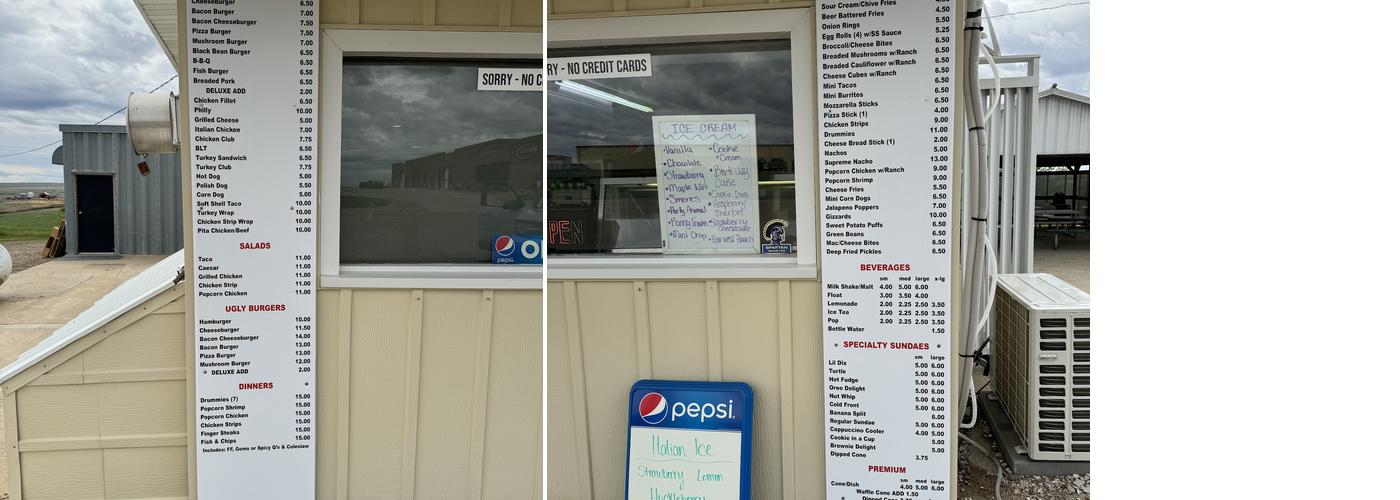 Cheeseburger 6.50
Bacon Burger 7.00
Bacon Cheeseburger 7.50
Pizza Burger 7.50
Mushroom Burger 7.00
Black Bean Burger 6.50
B-B-Q 6.50
Fish Burger 6.50
Breaded Pork 6.50
DELUXE ADD 2.00
Chicken Fillet 6.50
Philly 10.00
Grilled Cheese 5.00
Italian Chicken 7.00
Chicken Club 7.75
BLT 6.50
Turkey Sandwich 6.50
Turkey Club 7.75
Hot Dog 5.00
Polish Dog 5.50
Corn Dog 5.00
Soft Shell Taco 10.00
Turkey Wrap 10.00
Chicken Strip Wrap 10.00
Pita Chicken/Beef 10.00
SALADS
Taco 11.00
Caesar 11.00
Grilled Chicken 11.00
Chicken Strip 11.00
Popcorn Chicken 11.00
UGLY BURGERS
Hamburger 10.00
Cheeseburger 11.50
Bacon Cheeseburger 14.00
Bacon Burger 13.00
Pizza Burger 13.00
Mushroom Burger 12.00
DELUXE ADD 2.00
DINNERS
Drummies (7) 15.00
Popcorn Shrimp 15.00
Popcorn Chicken 15.00
Chicken Strips 15.00
Finger Steaks 15.00
Fish & Chips 15.00
Includes: FF, Gems or Spicy Q's & Coleslaw
SORRY - NO C
pepsi
RY - NO CREDIT CARDS
ICE CREAM
Vanilla
Chocolate
Strawberry
Maple Nut
Smores
Party Animal
Bunny Tracks
Mint Chip
Cookie
Cream
Birthday
Cake
Cookie Dough
Raspberry
Sherbet
Strawberry
Cheesecake
PEN
SPARTAN
pepsi
Italian Ice
Strawberry Lemon
Huckleberry
Sour Cream/Chive Fries 4.50
Beer Battered Fries 4.50
Onion Rings 5.50
Egg Rolls (4) w/SS Sauce 5.25
Broccoli/Cheese Bites 6.50
Breaded Mushrooms w/Ranch 6.50
Breaded Cauliflower w/Ranch 6.50
Cheese Cubes w/Ranch 6.50
Mini Tacos 6.50
Mini Burritos 6.50
Mozzarella Sticks 6.50
Pizza Stick (1) 4.00
Chicken Strips 9.00
Drummies 11.00
Cheese Bread Stick (1) 2.00
Nachos 5.00
Supreme Nacho 13.00
Popcorn Chicken w/Ranch 9.00
Popcorn Shrimp 9.00
Cheese Fries 5.50
Mini Corn Dogs 6.50
Jalapeno Poppers 7.00
Gizzards 10.00
Sweet Potato Puffs 6.50
Green Beans 6.50
Mac/Cheese Bites 6.50
Deep Fried Pickles 6.50
BEVERAGES
sm med large x-lg
Milk Shake/Malt 4.00 5.00 6.00
Float 3.00 3.50 4.00
Lemonade 2.00 2.25 2.50 3.50
Ice Tea 2.00 2.25 2.50 3.50
Pop 2.00 2.25 2.50 3.50
Bottle Water 1.50
SPECIALTY SUNDAES
sm large
Lil Dix 5.00 6.00
Turtle 5.00 6.00
Hot Fudge 5.00 6.00
Oreo Delight 5.00 6.00
Nut Whip 5.00 6.00
Cold Front 5.00 6.00
Banana Split 6.00
Regular Sundae 5.00 6.00
Cappuccino Cooler 4.00 5.00
Cookie in a Cup 5.00
Brownie Delight 5.00
Dipped Cone 3.75
PREMIUM
sm med large
Cone/Dish 4.00 5.00 6.00
Waffle Cone ADD 1.50